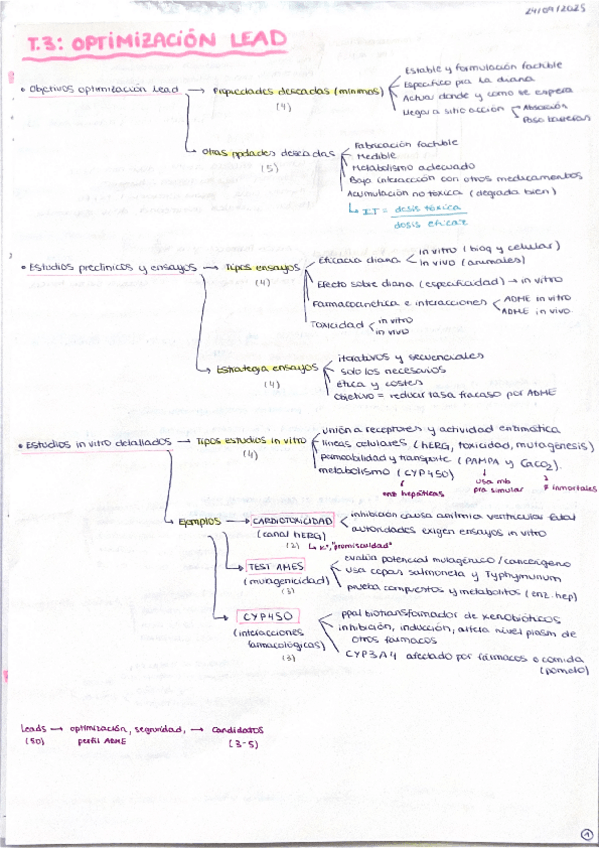 24/09/2025
T.3: OPTIMIZACIÓN LEAD
• Objetivos optimización lead → Propiedades deseadas (mínimas)
(4)
Estable y formulación factible
Específico pra la diana
Actuar donde y como se espera
Llegar a sitio acción
Absorción
Paso barreras
Otras ppdades deseadas
(5)
Fabricación factible
Medible
Metabolismo adecuado
Baja interacción con otros medicamentos
Acumulación no tóxica (degrada bien)
IT = dosis tóxica
dosis eficaz
• Estudios preclínicos y ensayos → Tipos ensayos
(4)
Eficacia diana
in vitro (bioq y celular)
in vivo (animales)
Efecto sobre diana (especificidad) → in vitro
Farmacocinética e interacciones
ADME in vitro
ADME in vivo
Toxicidad
in vitro
in vivo
Estrategia ensayos
(4)
iterativos y secuenciales
solo los necesarios
ética y costes
objetivo = reducir tasa fracaso por ADME
• Estudios in vitro detallados → Tipos estudios in vitro
(4)
unión a receptores y actividad enzimática
líneas celulares (hERG, toxicidad, mutagénesis)
permeabilidad y transporte (PAMPA y CaCO2).
metabolismo (CYP450)
enz hepáticas
usa mb
pra simular
inmortales
Ejemplos → CARDIOTOXICIDAD
(canal hERG)
(2) → K+, "promiscuidad"
inhibición causa arritmia ventricular fatal
autoridades exigen ensayos in vitro
TEST AMES
(mutagenicidad)
(3)
evalúa potencial mutagénico/cancerígeno
usa cepas salmonela y Typhymurium
prueba compuestos y metabolitos (enz. hep)
CYP450
(interacciones
farmacológicas)
(3)
ppal biotransformador de xenobióticos
inhibición, inducción, altera nivel plasm de
otros fármacos
CYP3A4 afectado por fármacos o comida
(pomelo)
Leads → optimización, seguridad, → candidatos
(50) perfil ADME (3-5)
1